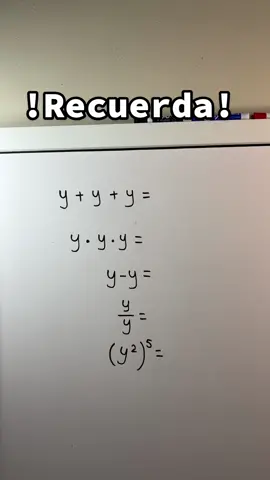 !Recuerda!
y + y + y =
y · y · y =
y - y =
y/y =
(y²)⁵ =